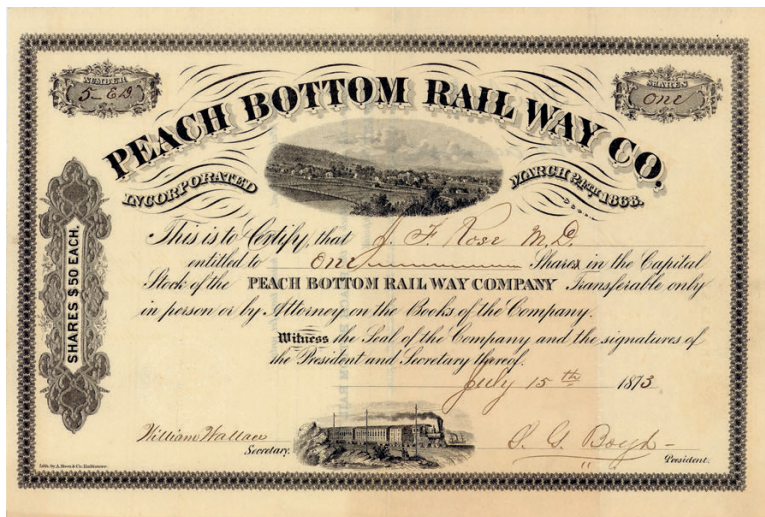 NUMBER
5-E.D.
SHARES
one
PEACH BOTTOM RAIL WAY CO.
INCORPORATED
MARCH 24TH 1868.
SHARES $50 EACH.
This is to Certify, that J. F. Rose M.D.
entitled to one Shares in the Capital
Stock of the PEACH BOTTOM RAIL WAY COMPANY Transferable only
in person or by Attorney on the Books of the Company.
Witness the Seal of the Company and the signatures of
the President and Secretary thereof.
July 15th 1873
William Wallace
Secretary.
S. G. Boyd
President.
Lith. by A. Hoen & Co. Baltimore.